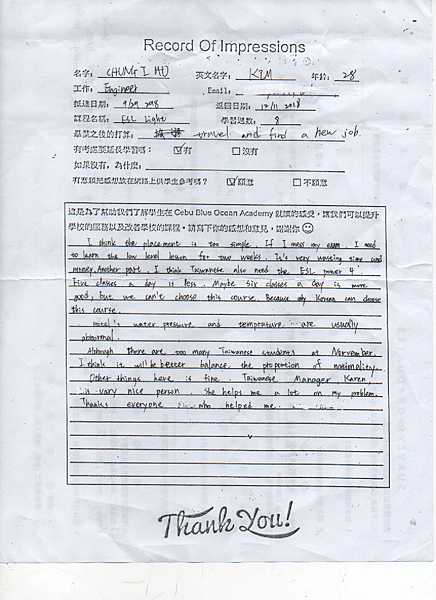 Record Of Impressions
名字: CHUNG I HU 英文名字: KIM 年紀: 28
工作: Engineer Email:
抵達日期: 9/29 2018 返回日期: 12/1 2018
課程名稱: ESL Light 學習週數: 8
畢業之後的打算: travel and find a new job.
有考慮要延長學習嗎: ☑有 □沒有
如果沒有, 為什麼:
有意願把感想放在網路上供學生參考嗎? ☑願意 □不願意
這是為了幫助我們了解學生在 Cebu Blue Ocean Academy 就讀的感受, 讓我們可以提升
學校的服務以及改善學校的課程, 請寫下你的感想和意見, 謝謝你☺
I think the placement is too simple. If I miss my exam I need
to learn the low level lesson for two weeks. It's very wasting time and
money. Another part, I think Taiwanese also need the ESL power 4.
Five classes a day is less. Maybe six classes a day is more
good, but we can't choose this course. Because only Korean can choose
this course.
Hotel's water pressure and temprature are usually
abnormal.
Although there are too many Taiwanese students at Norvember.
I think it will be better balance the proportion of nationality.
Other things here is fine Taiwanese Manager Karen,
is vary nice person. She helps me a lot on my problem.
Thanks everyone who helped me.
Thank You!